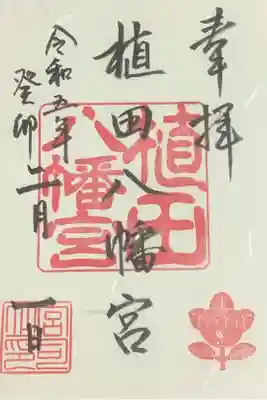 奉拝
植田八幡宮
令和五年
癸卯二月一日
植田
八幡宮